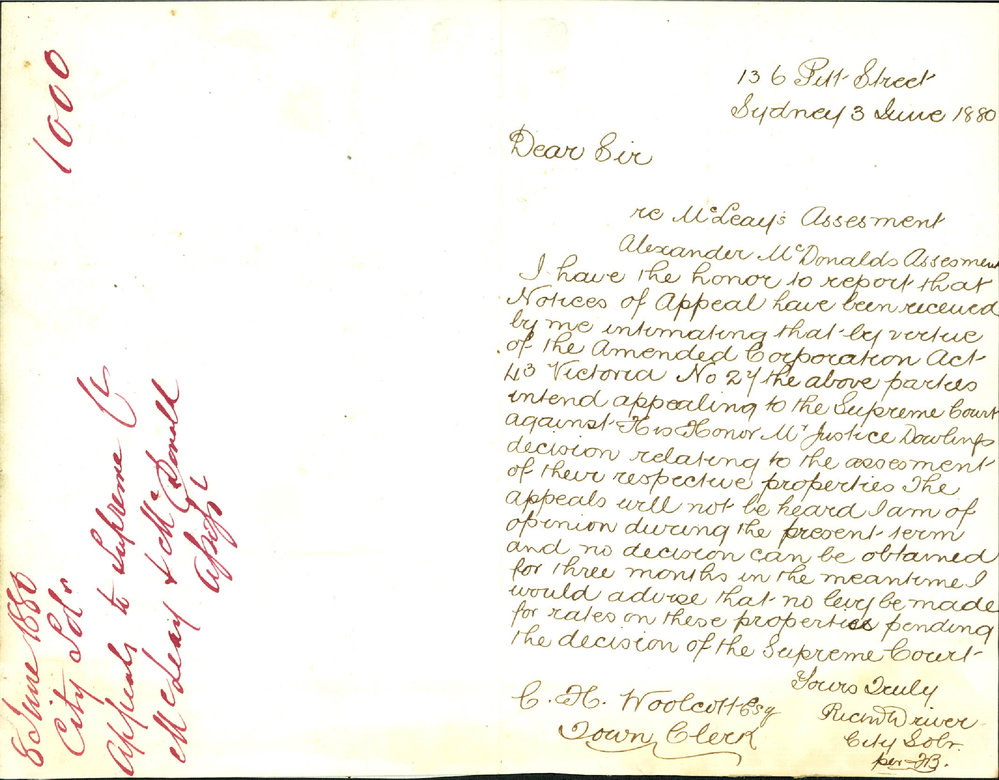 1000
3 June 1880
City Solr
Appeals to Supreme Ct
McLeay & McDonald
Assesst
136 Pitt Street
Sydney 3 June 1880
Dear Sir
re McLeay's Assesment
Alexander McDonalds Assesment
I have the honor to report that
Notices of Appeal have been received
by me intimating that by vertue
of the Amended Corporation Act
43 Victoria No 27 the above parties
intend appealing to the Supreme Court
against His Honor Mr Justice Dowlings
decision relating to the assesment
of their respective properties The
appeals will not be heard I am of
opinion during the present term
and no decision can be obtained
for three months in the meantime I
would advise that no levy be made
for rates on these properties pending
the decision of the Supreme Court
Yours Truly
Richd Driver
City Solr.
per
C. H. Woolcott Esq
Town Clerk